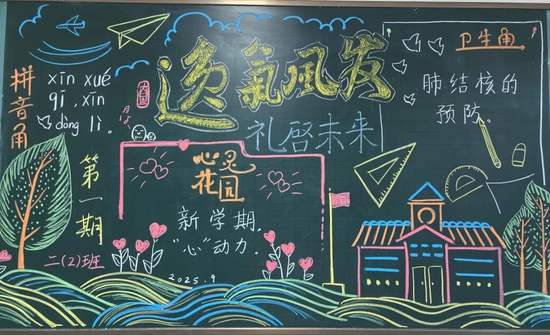 拼音角
xīn xué
qī, xīn
dòng lì.
第一期
二(2)班
氣風发
礼启未来
心灵
花园
新学期,
“心”动力.
2025.9
卫生角
肺结核的
预防。